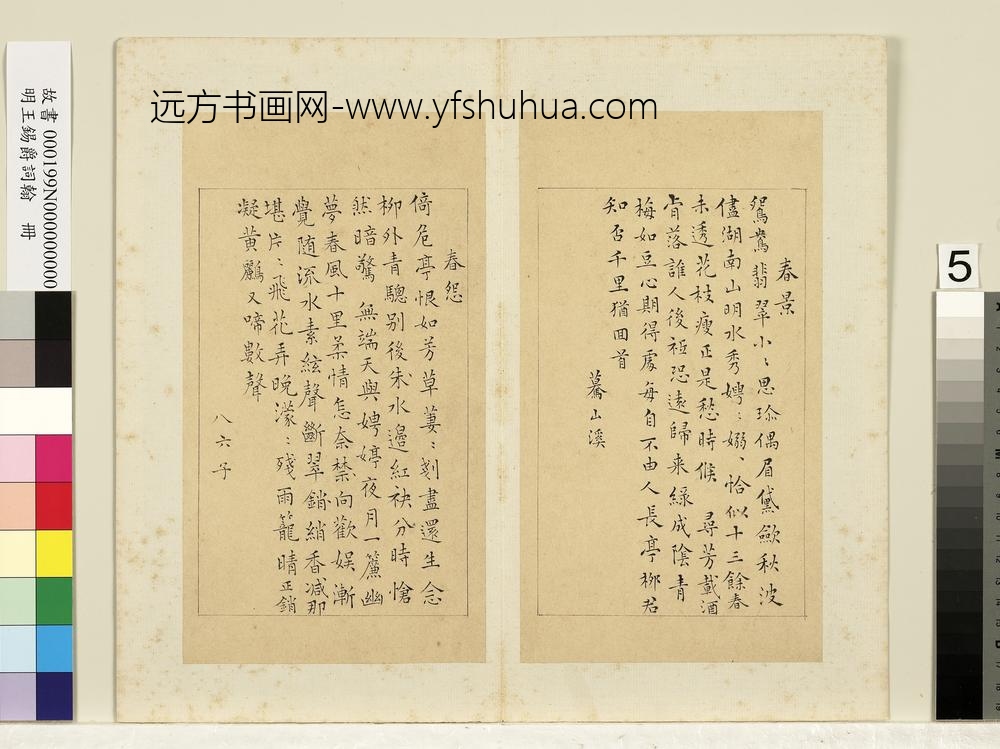 远方书画网-www.yfshuhua.com
故書 000199N000000000
明王錫爵詞翰 冊
5
春景
鴛鴦翡翠小〻思珎偶眉黛歛秋波
儘湖南山明水秀娉〻嫋〻恰似十三餘春
未透花枝瘦正是愁時候 尋芳載酒
肯落誰人後秪恐遠歸来緑成陰青
梅如豆心期得處每自不由人長亭柳君
知否千里猶囬首
驀山溪
春怨
倚危亭恨如芳草萋〻剗盡還生念
柳外青驄别後水邉紅袂分時愴
然暗驚 無端天與娉婷夜月一簾幽
夢春風十里柔情怎奈禁向歡娱漸
覺随流水素絃聲斷翠銷綃香减那
堪片〻飛花弄晚濛〻殘雨籠晴正銷
凝黄鸝又啼數聲
八六子